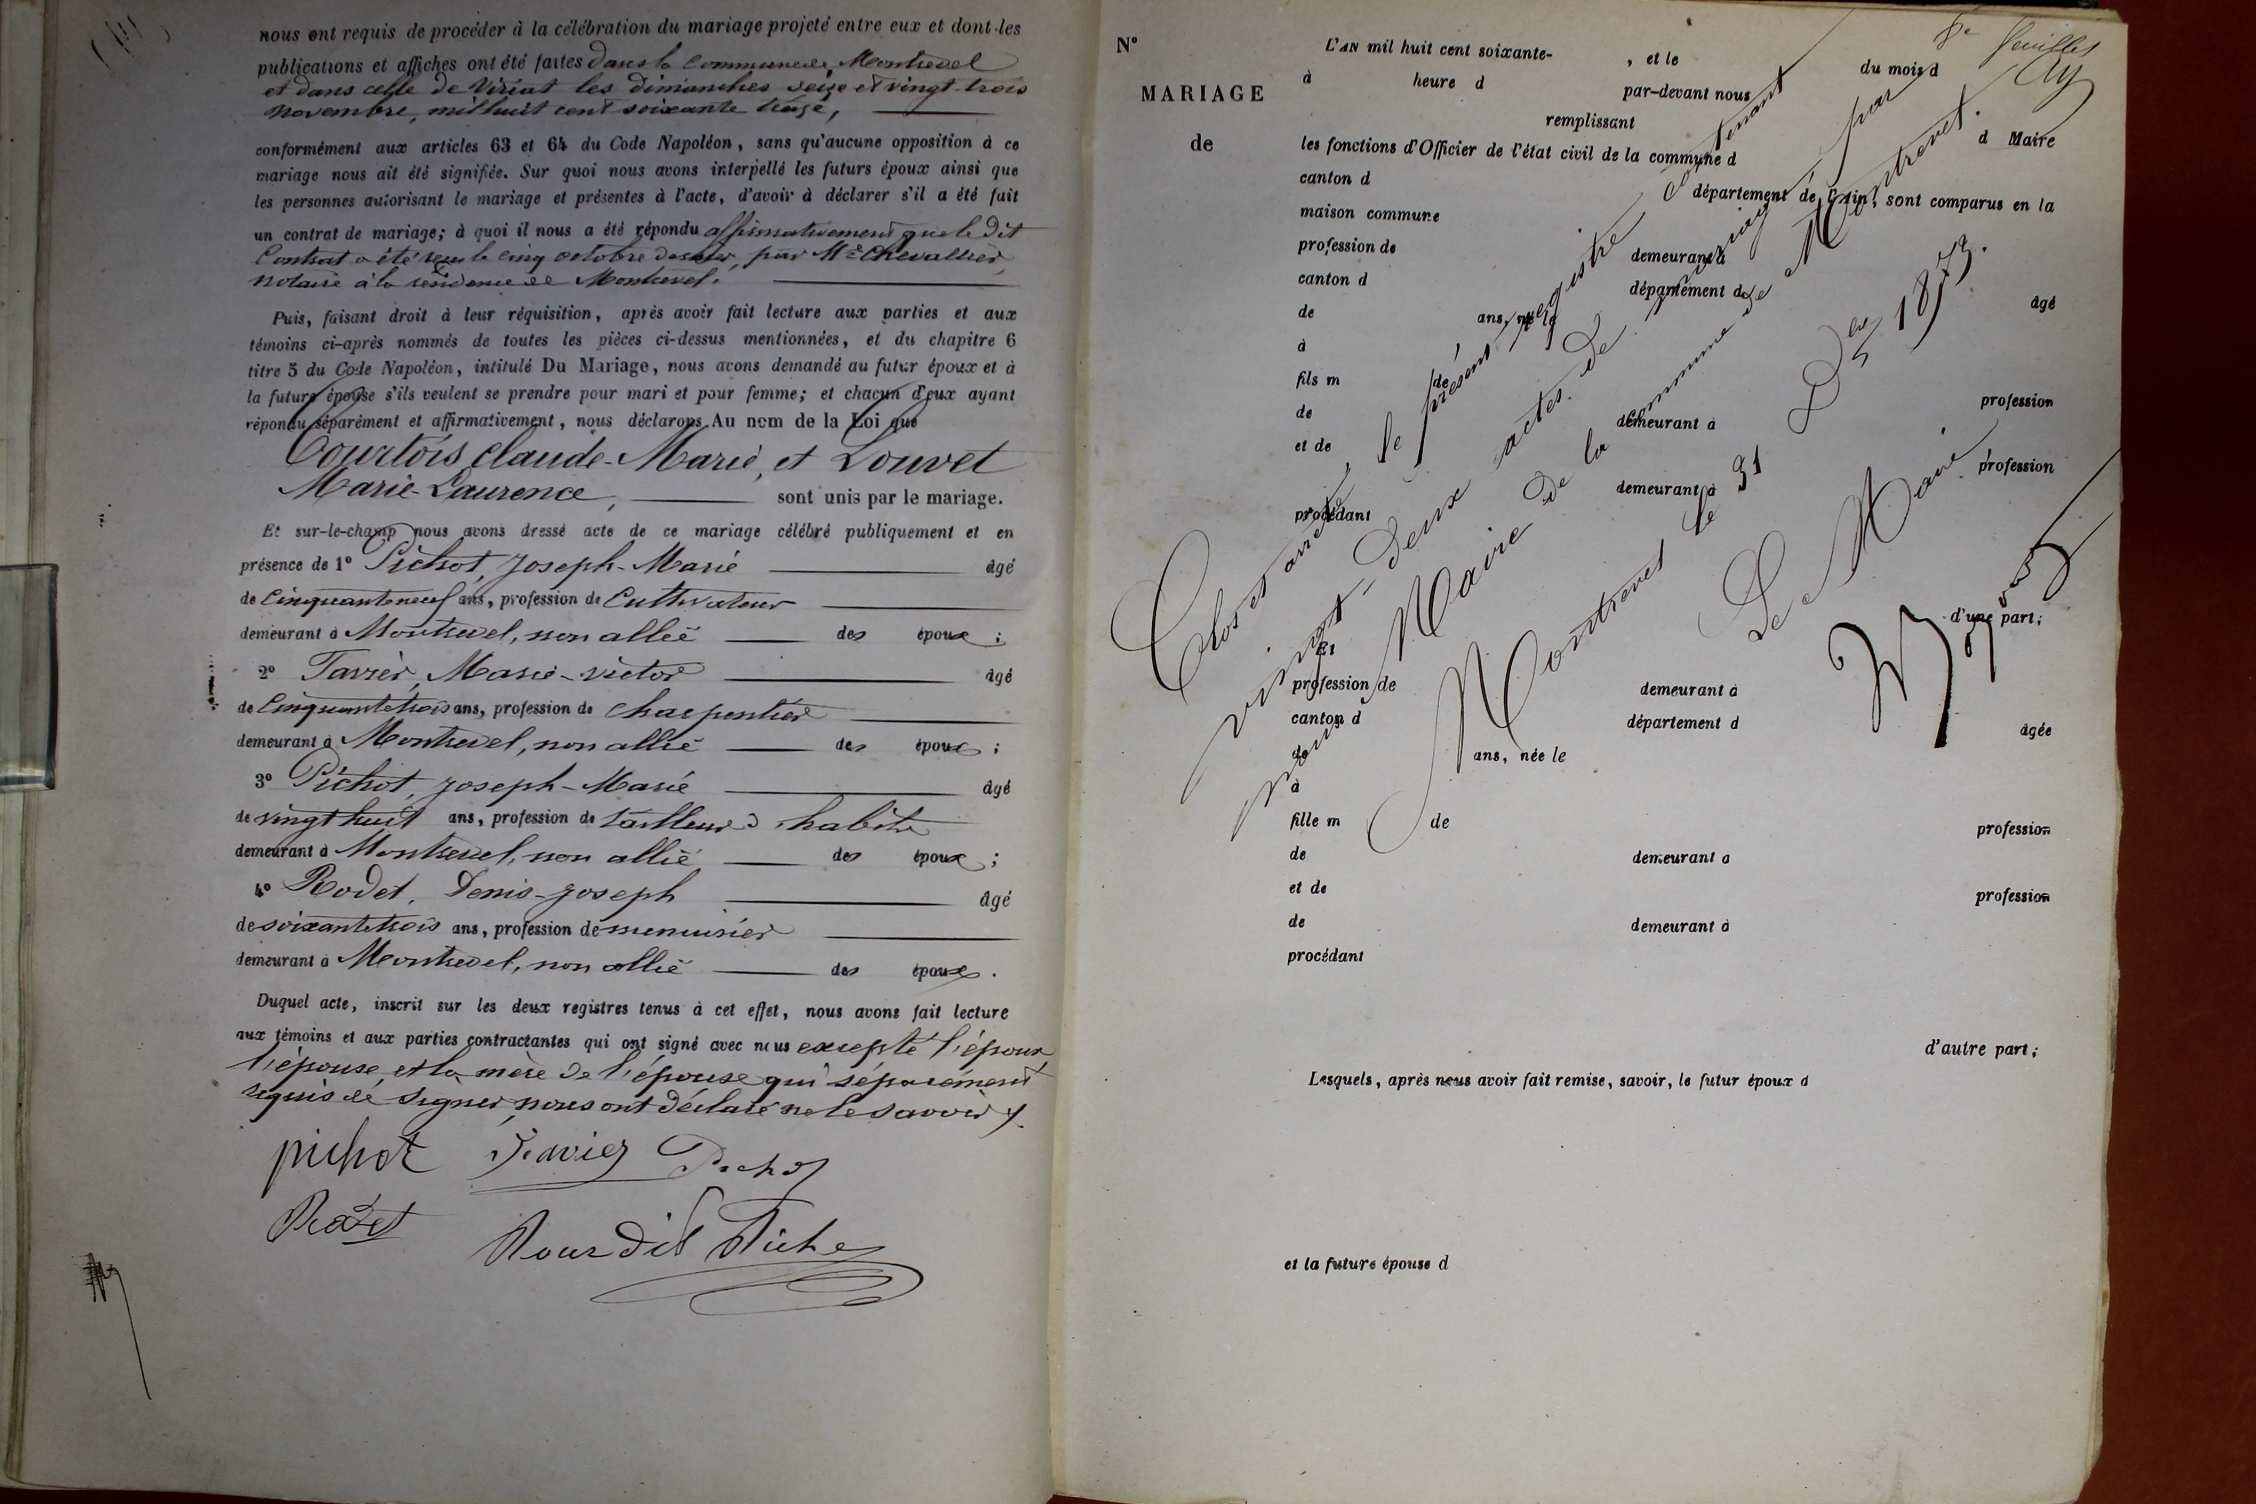 nous ont requis de procéder à la célébration du mariage projeté entre eux et dont les
publications et affiches ont été faites dans la commune de Montrevel
et dans celle de Viriat les dimanches seize et vingt-trois
novembre, mil huit cent soixante treize,
conformément aux articles 63 et 64 du Code Napoléon, sans qu'aucune opposition à ce
mariage nous ait été signifiée. Sur quoi nous avons interpellé les futurs époux ainsi que
les personnes autorisant le mariage et présentes à l'acte, d'avoir à déclarer s'il a été fait
un contrat de mariage; à quoi il nous a été répondu affirmativement que le dit
Contrat a été reçu le cinq octobre dernier, par Me Chevallier,
notaire à la résidence de Montrevel.
Puis, faisant droit à leur réquisition, après avoir fait lecture aux parties et aux
témoins ci-après nommés de toutes les pièces ci-dessus mentionnées, et du chapitre 6
titre 5 du Code Napoléon, intitulé Du Mariage, nous avons demandé au futur époux et à
la future épouse s'ils veulent se prendre pour mari et pour femme; et chacun d'eux ayant
répondu séparément et affirmativement, nous déclarons Au nom de la Loi que
Courtois Claude-Marie, et Louvet
Marie-Laurence, sont unis par le mariage.
Et sur-le-champ nous avons dressé acte de ce mariage célébré publiquement et en
présence de 1o Pichot, Joseph-Marie âgé
de Cinquante neuf ans, profession de Cultivateur
demeurant à Montrevel, non allié des époux;
2o Tavier, Marie-victor âgé
de Cinquante trois ans, profession de charpentier
demeurant à Montrevel, non allié des époux;
3o Pichot, Joseph-Marie âgé
de vingt huit ans, profession de tailleur d'habits
demeurant à Montrevel, non allié des époux;
4o Rodet, Denis-Joseph âgé
de soixante trois ans, profession de menuisier
demeurant à Montrevel, non allié des époux.
Duquel acte, inscrit sur les deux registres tenus à cet effet, nous avons fait lecture
aux témoins et aux parties contractantes qui ont signé avec nous excepté l'époux
l'épouse, et la mère de l'épouse qui séparément
requis de signer, nous ont déclaré ne le savoir
pichot Tavier Pichot
Rodet
No
MARIAGE
de
8e feuillet
L'AN mil huit cent soixante- , et le du mois d
à heure d par-devant nous
remplissant
les fonctions d'Officier de l'état civil de la commune d d Maire
canton d département de l'Ain, sont comparus en la
maison commune
profession de demeurant à
canton d département d
de ans, né le âgé
à
fils m de
de demeurant à profession
et de
demeurant à profession
procédant
d'une part;
Et
profession de demeurant à
canton d département d
de ans, née le âgée
à
fille m de profession
de demeurant à
et de profession
de demeurant à
procédant
d'autre part;
Lesquels, après nous avoir fait remise, savoir, le futur époux d
et la future épouse d
Clos et arrêté, le présent registre contenant
vingt-deux actes de mariage, par
nous Maire de la commune de Montrevel.
Montrevel le 31 Dbre 1873.
Le Maire